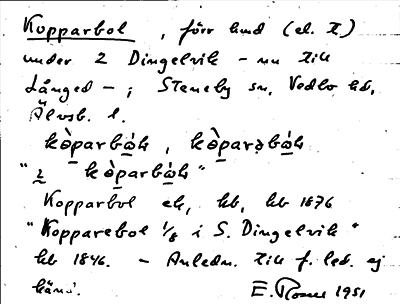 Kopparbol, förr hmd (el. t.)
under 2 Dingelvik - nu till
Långed - ; Steneby sn, Vedbo hd,
Älvsb. l.
kòparbὼḷ, kòparəbὼḷ
"2 kòparbὼḷ"
Kopparbol ek, hb, hb 1876
"Kopparebol 1/8 i S. Dingelvik"
hb 1846. - Anledn. till f. led. ej
känd. E. 1951